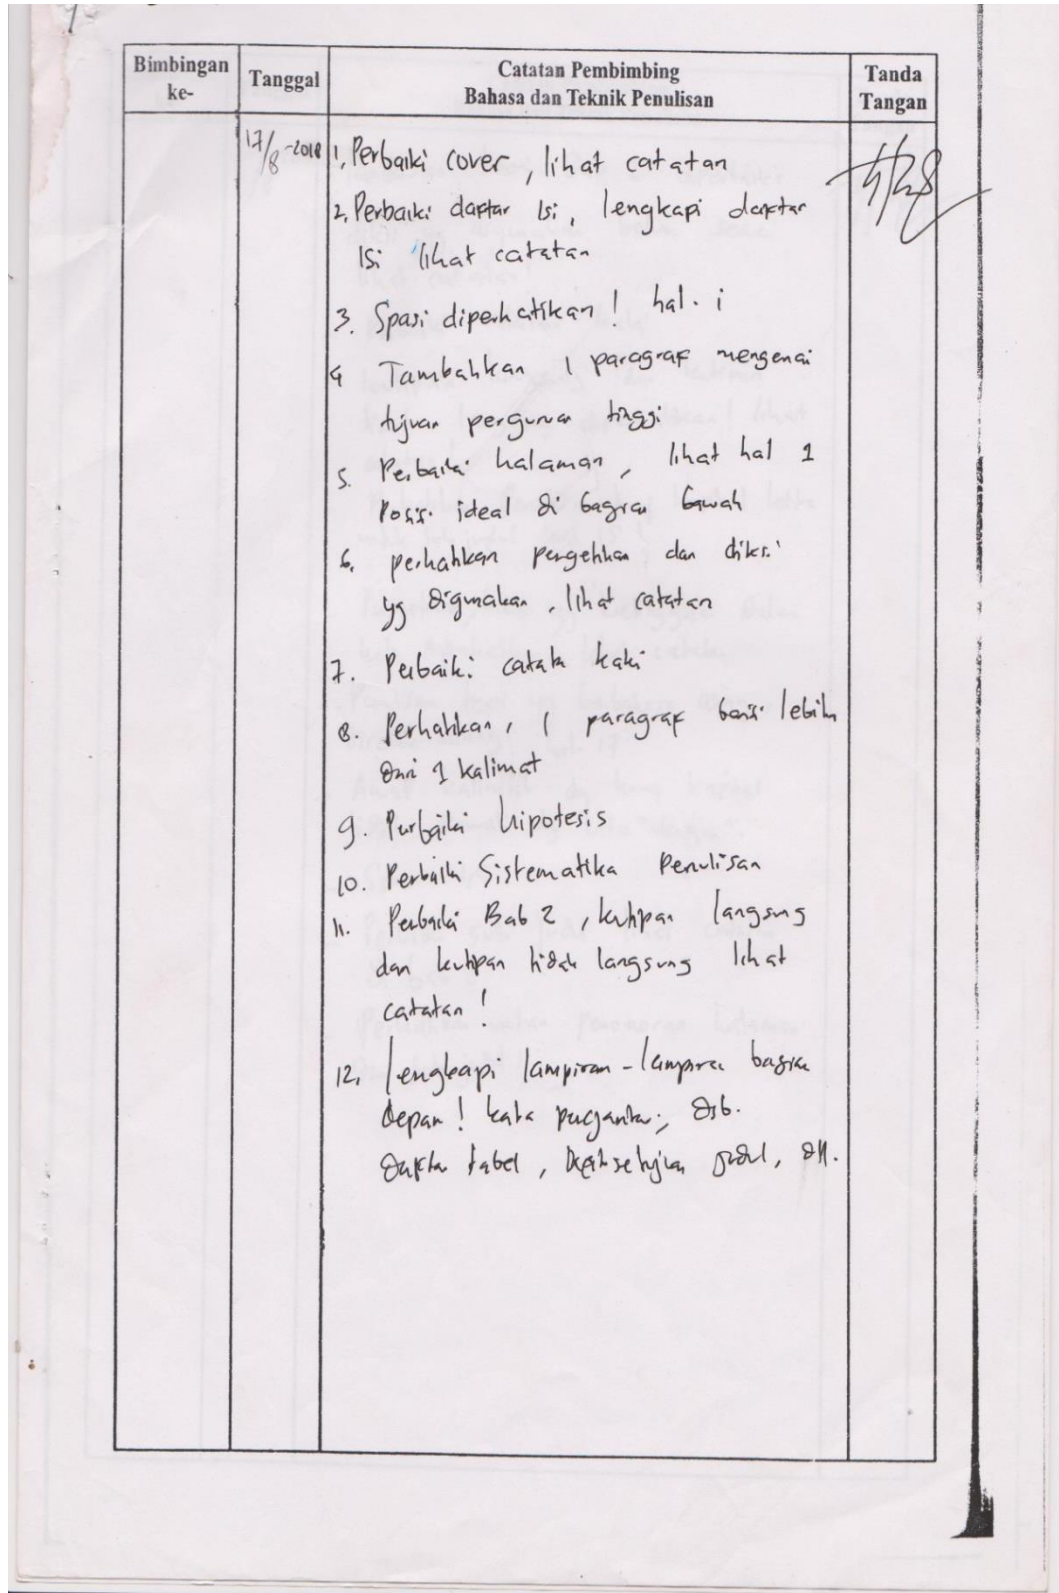 Bimbingan ke-
Tanggal
Catatan Pembimbing
Bahasa dan Teknik Penulisan
Tanda Tangan
17/8-2018
1, Perbaiki cover, lihat catatan
2, Perbaiki daftar Isi, lengkapi daftar
Isi lihat catatan
3. Spasi diperhatikan! hal. i
4 Tambahkan 1 paragraf mengenai
tujuan perguruan tinggi
5. Perbaiki halaman, lihat hal 1
Posisi ideal di bagian bawah
6. perhatikan pengetikan dan diksi
yg digunakan, lihat catatan
7. Perbaiki catatan kaki
8. Perhatikan, 1 paragraf berisi lebih
dari 1 kalimat
9. Perbaiki hipotesis
10. Perbaiki Sistematika Penulisan
11. Perbaiki Bab 2, kutipan langsung
dan kutipan tidak langsung lihat
catatan!
12, lengkapi lampiran-lampiran bagian
depan! kata pengantar, dsb.
Daftar tabel, judul, dll.